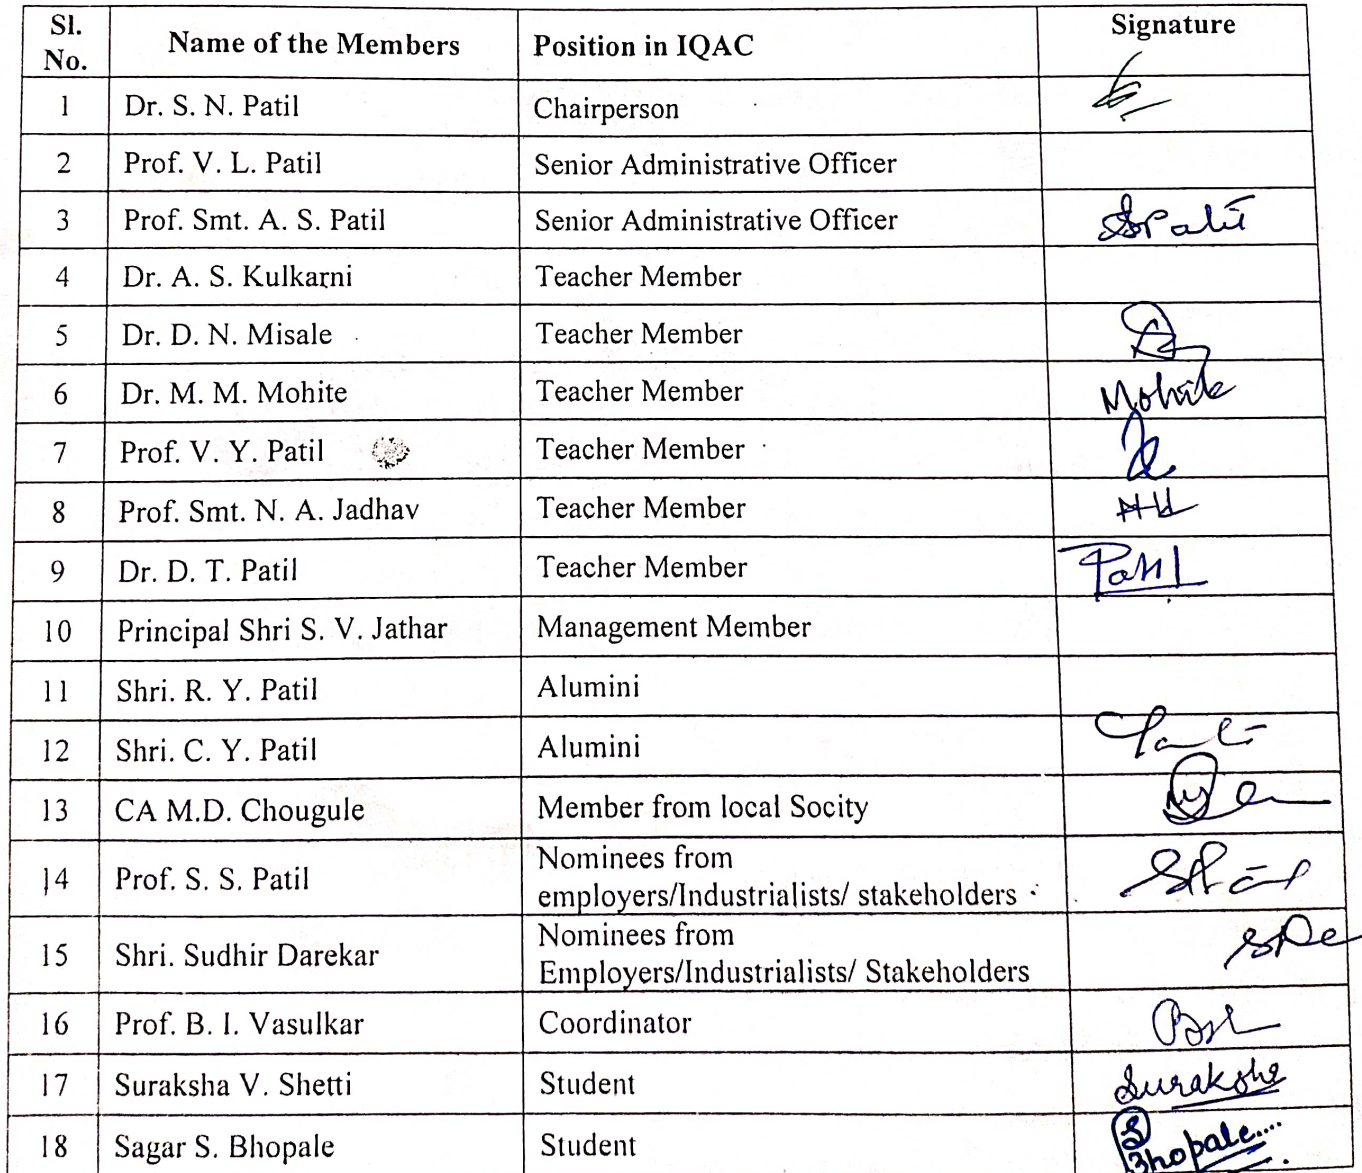 Sl. No. Name of the Members Position in IQAC Signature
1 Dr. S. N. Patil Chairperson
2 Prof. V. L. Patil Senior Administrative Officer
3 Prof. Smt. A. S. Patil Senior Administrative Officer SPatil
4 Dr. A. S. Kulkarni Teacher Member
5 Dr. D. N. Misale Teacher Member
6 Dr. M. M. Mohite Teacher Member Mohite
7 Prof. V. Y. Patil Teacher Member
8 Prof. Smt. N. A. Jadhav Teacher Member
9 Dr. D. T. Patil Teacher Member Patil
10 Principal Shri S. V. Jathar Management Member
11 Shri. R. Y. Patil Alumini
12 Shri. C. Y. Patil Alumini
13 CA M.D. Chougule Member from local Socity
14 Prof. S. S. Patil Nominees from
employers/Industrialists/ stakeholders
15 Shri. Sudhir Darekar Nominees from
Employers/Industrialists/ Stakeholders
16 Prof. B. I. Vasulkar Coordinator
17 Suraksha V. Shetti Student Suraksha
18 Sagar S. Bhopale Student S
Bhopale....